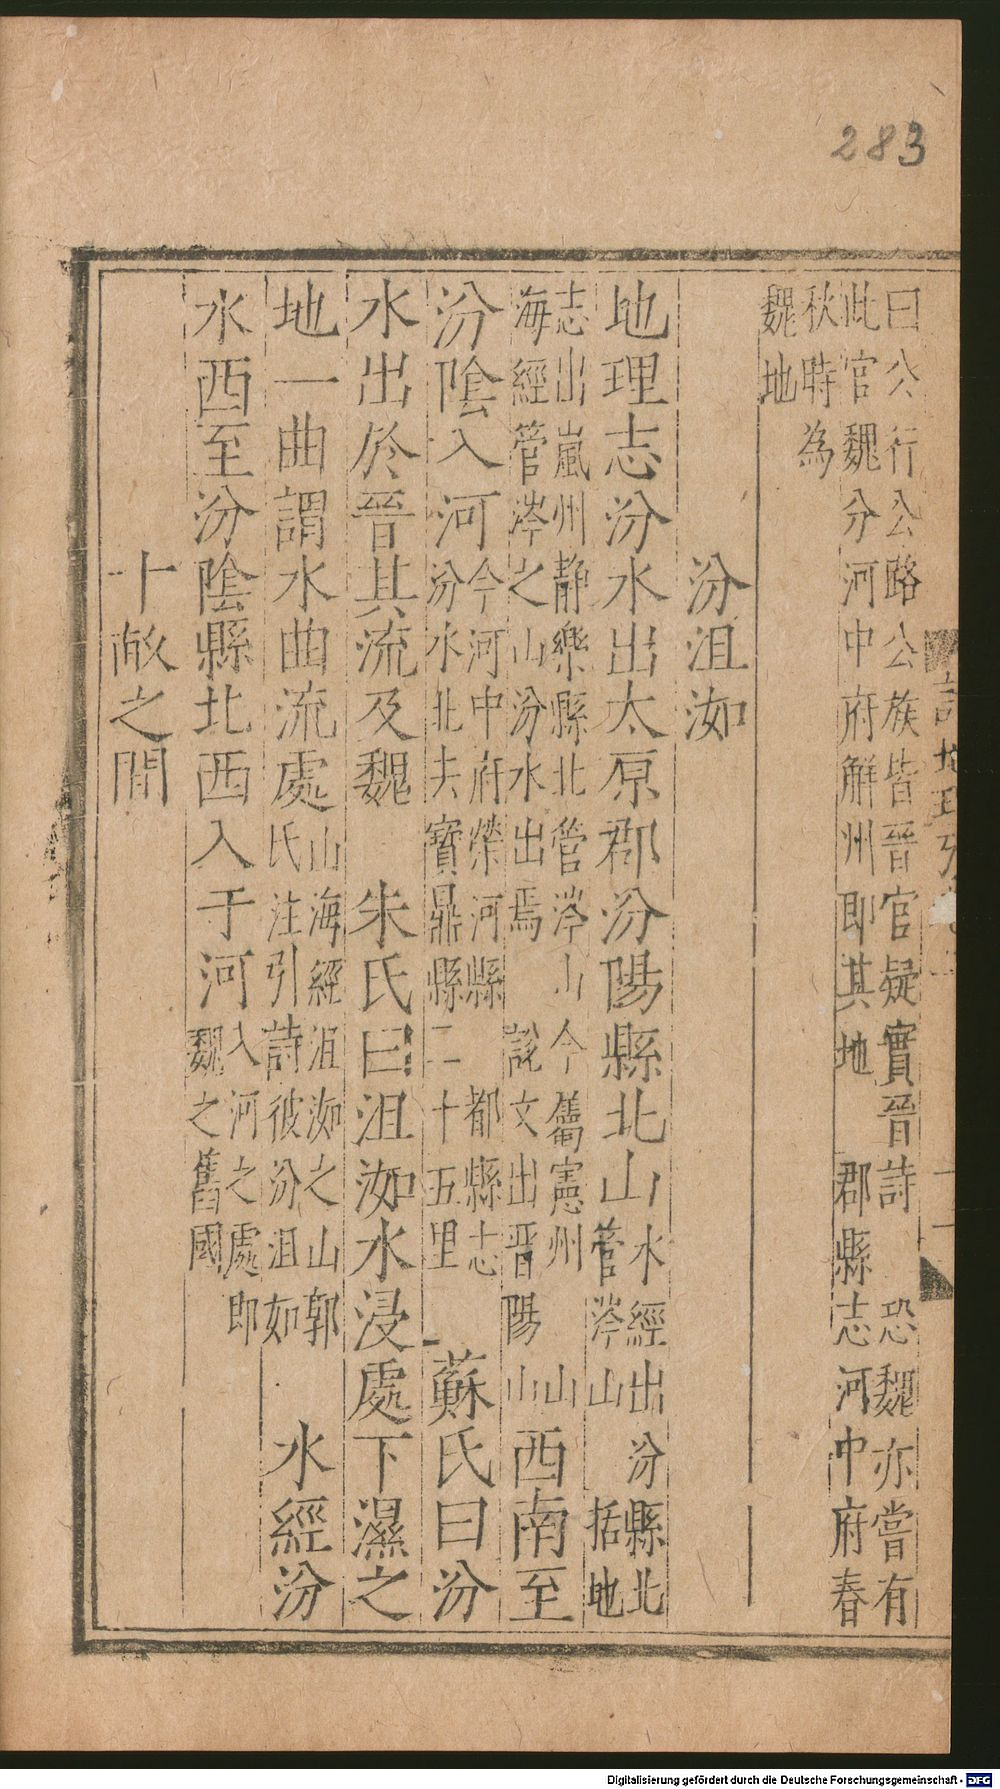 283
曰公行公路公族皆晉官疑實晉詩　恐魏亦嘗有
此官魏分河中府解州即其地　郡縣志河中府春
秋時為
魏地
汾沮洳
地理志汾水出太原郡汾陽縣北山水經出汾縣北
管涔山　括地
志出嵐州靜樂縣北管涔山今舊憲州　山
海經管涔之山汾水出焉　說文出晉陽山
西南至
汾陰入河今河中府榮河縣　都縣志
汾水北去寶鼎縣二十五里
蘇氏曰汾
水出於晉其流及魏　朱氏曰沮洳水浸處下濕之
地一曲謂水曲流處山海經沮洳之山郭
氏注引詩彼汾沮如
水經汾
水西至汾陰縣北西入于河入河之處即
魏之舊國
十畝之間
Digitalisierung gefördert durch die Deutsche Forschungsgemeinschaft - DFG